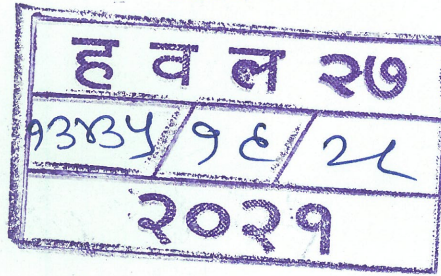 ह व ल २७
१३४३५/१६/२८
२०२१